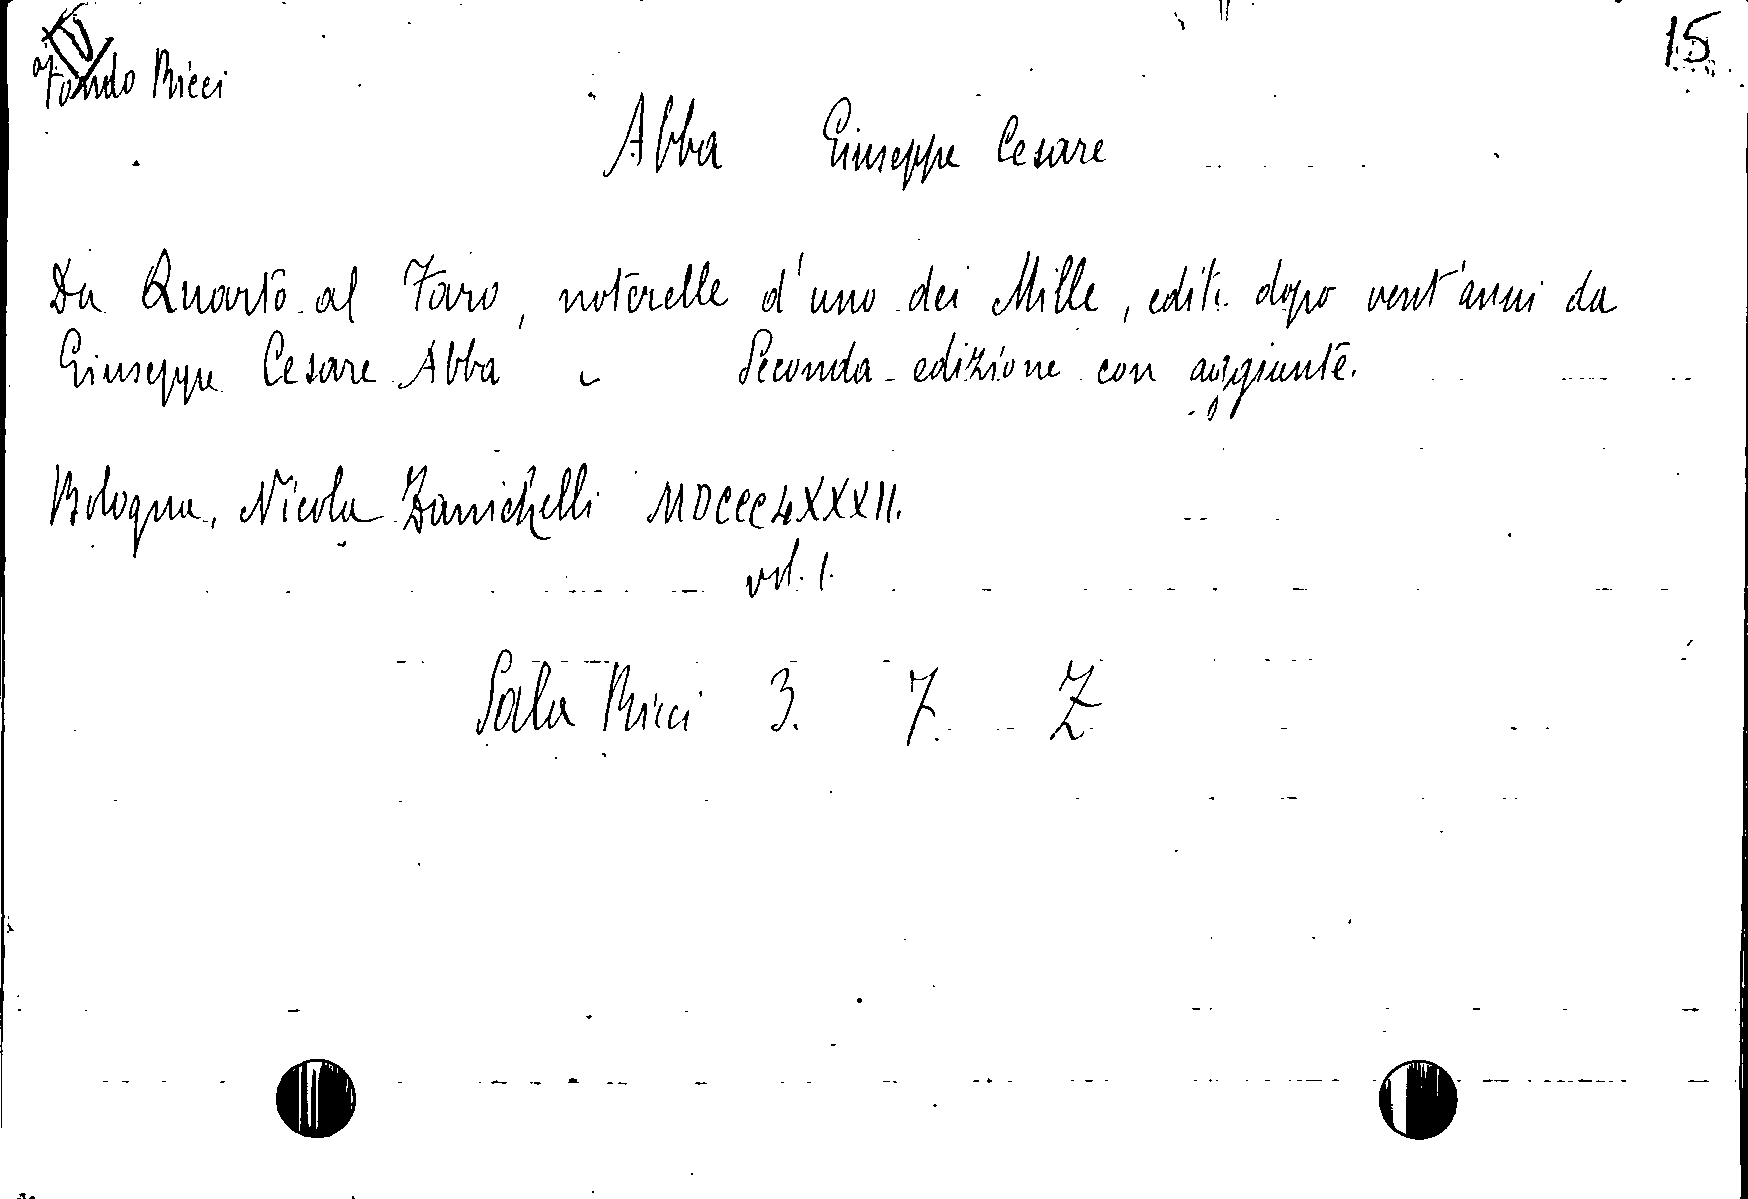 15
Fondo Ricci
Abba Giuseppe Cesare
Da Quarto al Faro, noterelle d'uno dei Mille, edite dopo vent'anni da
Giuseppe Cesare Abba - Seconda edizione con aggiunte.
Bologna, Nicola Zanichelli MDCCCLXXXII.
vol. 1.
Sala Ricci 3. 7. Z